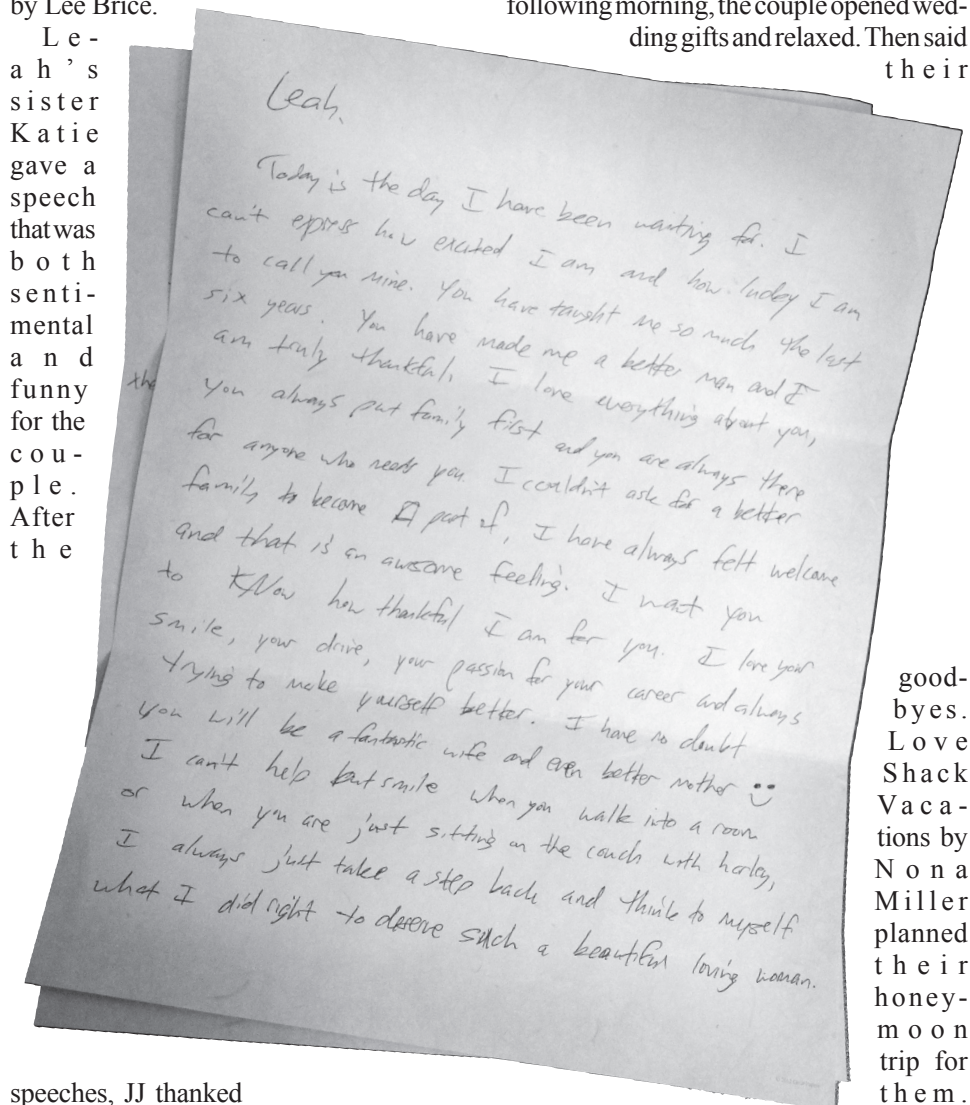 by Lee Brice.
Le-
ah's
sister
Katie
gave a
speech
that was
both
senti-
mental
and
funny
for the
cou-
ple.
After
the
speeches, JJ thanked
Leah,
Today is the day I have been waiting for. I
can't express how excited I am and how luckey I am
to call you mine. You have taught me so much the last
six years. You have made me a better man and I
am truly thankful. I love everything about you,
you always put family first and you are always there
for anyone who needs you. I couldn't ask for a better
family to become a part of, I have always felt welcome
and that is an awsome feeling. I want you
to KNow how thankful I am for you. I love your
smile, your drive, your passion for your career and always
trying to make yourself better. I have no doubt
you will be a fantastic wife and even better mother
I can't help but smile when you walk into a room
or when you are just sitting on the couch with harley,
I always just take a step back and think to myself
what I did right to deserve such a beautiful loving woman.
following morning, the couple opened wed-
ding gifts and relaxed. Then said
their
good-
byes.
Love
Shack
Vaca-
tions by
Nona
Miller
planned
their
honey-
moon
trip for
them.